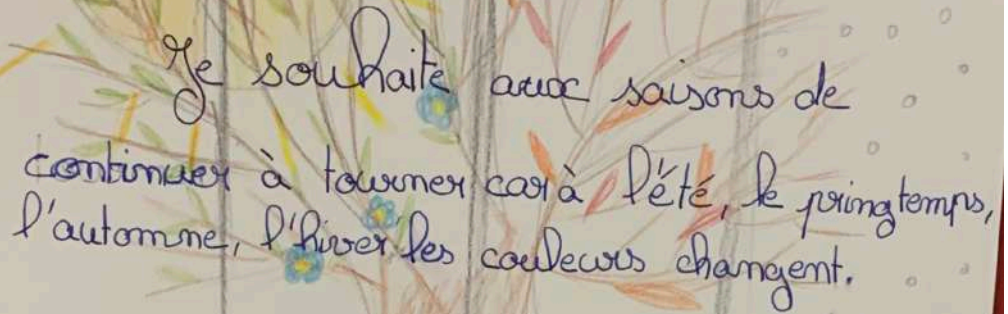 Je souhaite aux saisons de
continuer à tourner car à l'été, le pringtemps,
l'automne, l'hiver les couleurs changent.